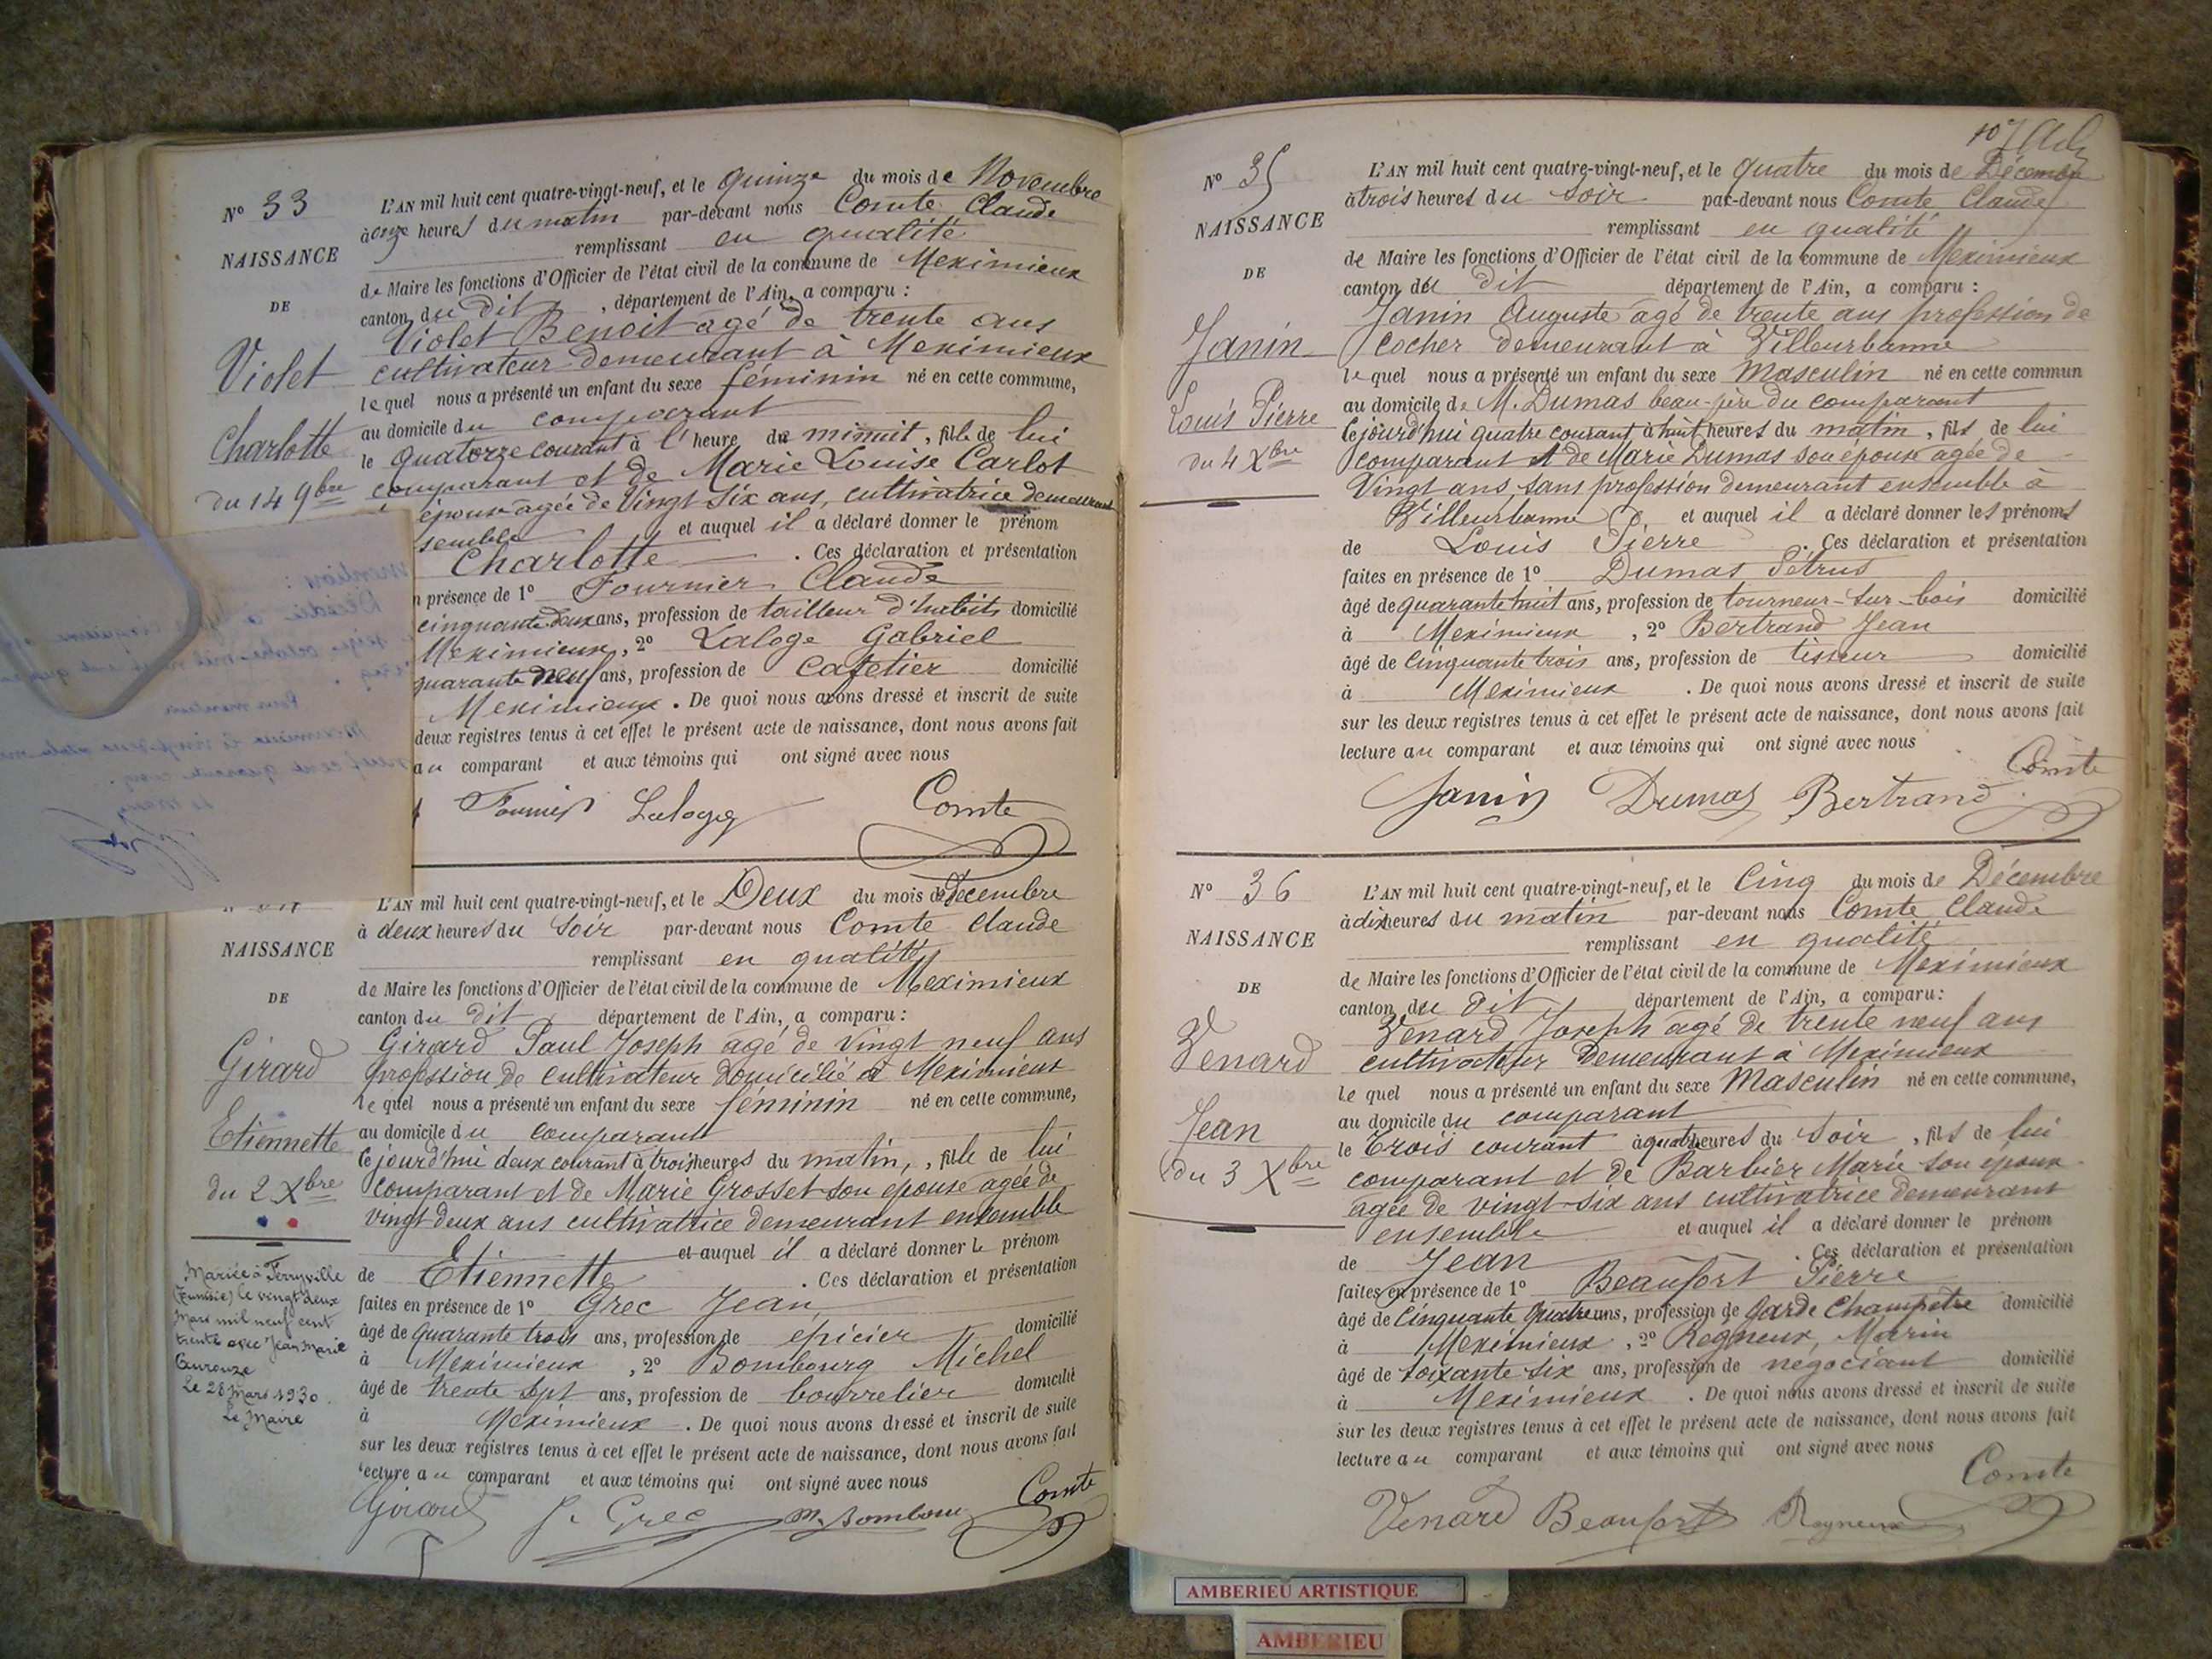 Nº 33
NAISSANCE
DE
Violet
Charlotte
du 14 9bre
L'AN mil huit cent quatre-vingt-neuf, et le quinze du mois de Novembre
à onze heures du matin par-devant nous Comte Claude
remplissant en qualité
de Maire les fonctions d'Officier de l'état civil de la commune de Meximieux
canton du dit, département de l'Ain, a comparu :
Violet Benoit agé de trente ans
cultivateur demeurant à Meximieux
lequel nous a présenté un enfant du sexe féminin né en cette commune,
au domicile du comparant
le quatorze courant à l'heure de minuit, fille de lui
comparant et de Marie Louise Carlot
épouse agée de Vingt Six ans, cultivatrice demeurant
semble et auquel il a déclaré donner le prénom
Charlotte . Ces déclaration et présentation
n présence de 1º Fournier Claude
cinquante deux ans, profession de tailleur d'habits domicilié
Meximieux, 2º Laloge Gabriel
quarante neuf ans, profession de cafetier domicilié
Meximieux . De quoi nous avons dressé et inscrit de suite
deux registres tenus à cet effet le présent acte de naissance, dont nous avons fait
au comparant et aux témoins qui ont signé avec nous
Fournier Laloge Comte
NAISSANCE
DE
Girard
Etiennette
du 2 Xbre
Mariée à Ferryville
(Tunisie) le vingt deux
Mars mil neuf cent
trente avec Jean Marie
Le 28 Mars 1930.
Le Maire
L'AN mil huit cent quatre-vingt-neuf, et le Deux du mois de Décembre
à deux heures du soir par-devant nous Comte Claude
remplissant en qualité
de Maire les fonctions d'Officier de l'état civil de la commune de Meximieux
canton du dit département de l'Ain, a comparu :
Girard Paul Joseph agé de vingt neuf ans
profession de cultivateur domicilié à Meximieux
lequel nous a présenté un enfant du sexe féminin né en cette commune,
au domicile du comparant
cejourd'hui deux courant à trois heures du matin, fille de lui
comparant et de Marie Grosset son epouse agée de
vingt deux ans cultivatrice demeurant ensemble
et auquel il a déclaré donner le prénom
de Etiennette . Ces déclaration et présentation
faites en présence de 1º Grec Jean
âgé de quarante trois ans, profession de épicier domicilié
à Meximieux, 2º Bombourg Michel
âgé de trente sept ans, profession de bourrelier domicilié
à Meximieux . De quoi nous avons dressé et inscrit de suite
sur les deux registres tenus à cet effet le présent acte de naissance, dont nous avons fait
lecture au comparant et aux témoins qui ont signé avec nous
Girard J. Grec M. Bombour Comte
107
Nº 35
NAISSANCE
DE
Janin
Louis Pierre
du 4 Xbre
L'AN mil huit cent quatre-vingt-neuf, et le quatre du mois de Décembre
à trois heures du soir par-devant nous Comte Claude
remplissant en qualité
de Maire les fonctions d'Officier de l'état civil de la commune de Meximieux
canton du dit département de l'Ain, a comparu :
Janin Auguste agé de trente ans profession de
cocher demeurant à Villeurbanne
lequel nous a présenté un enfant du sexe Masculin né en cette commun
au domicile de M. Dumas beau-père du comparant
cejourd'hui quatre courant à huit heures du matin, fils de lui
comparant et de Marie Dumas son épouse agée de
Vingt ans, sans profession demeurant ensemble à
Villeurbanne et auquel il a déclaré donner les prénoms
de Louis Pierre . Ces déclaration et présentation
faites en présence de 1º Dumas Pétrus
âgé de quarante huit ans, profession de tourneur-sur-bois domicilié
à Meximieux, 2º Bertrand Jean
âgé de cinquante trois ans, profession de tisseur domicilié
à Meximieux . De quoi nous avons dressé et inscrit de suite
sur les deux registres tenus à cet effet le présent acte de naissance, dont nous avons fait
lecture au comparant et aux témoins qui ont signé avec nous
Janin Dumas Bertrand Comte
Nº 36
NAISSANCE
DE
Venard
Jean
du 3 Xbre
L'AN mil huit cent quatre-vingt-neuf, et le Cinq du mois de Décembre
à dix heures du matin par-devant nous Comte Claude
remplissant en qualité
de Maire les fonctions d'Officier de l'état civil de la commune de Meximieux
canton du dit département de l'Ain, a comparu :
Venard Joseph agé de trente neuf ans
cultivateur demeurant à Meximieux
lequel nous a présenté un enfant du sexe Masculin né en cette commune,
au domicile du comparant
le Trois courant à quatre heures du soir, fils de lui
comparant et de Barbier Marie son epouse
agée de vingt-six ans cultivatrice demeurant
ensemble et auquel il a déclaré donner le prénom
de Jean . Ces déclaration et présentation
faites en présence de 1º Beaufort Pierre
âgé de Cinquante quatre ans, profession de Garde Champêtre domicilié
à Meximieux, 2º Regneux, Marin
âgé de soixante six ans, profession de négociant domicilié
à Meximieux . De quoi nous avons dressé et inscrit de suite
sur les deux registres tenus à cet effet le présent acte de naissance, dont nous avons fait
lecture au comparant et aux témoins qui ont signé avec nous
Venard Beaufort Regneux Comte
AMBERIEU ARTISTIQUE
AMBERIEU